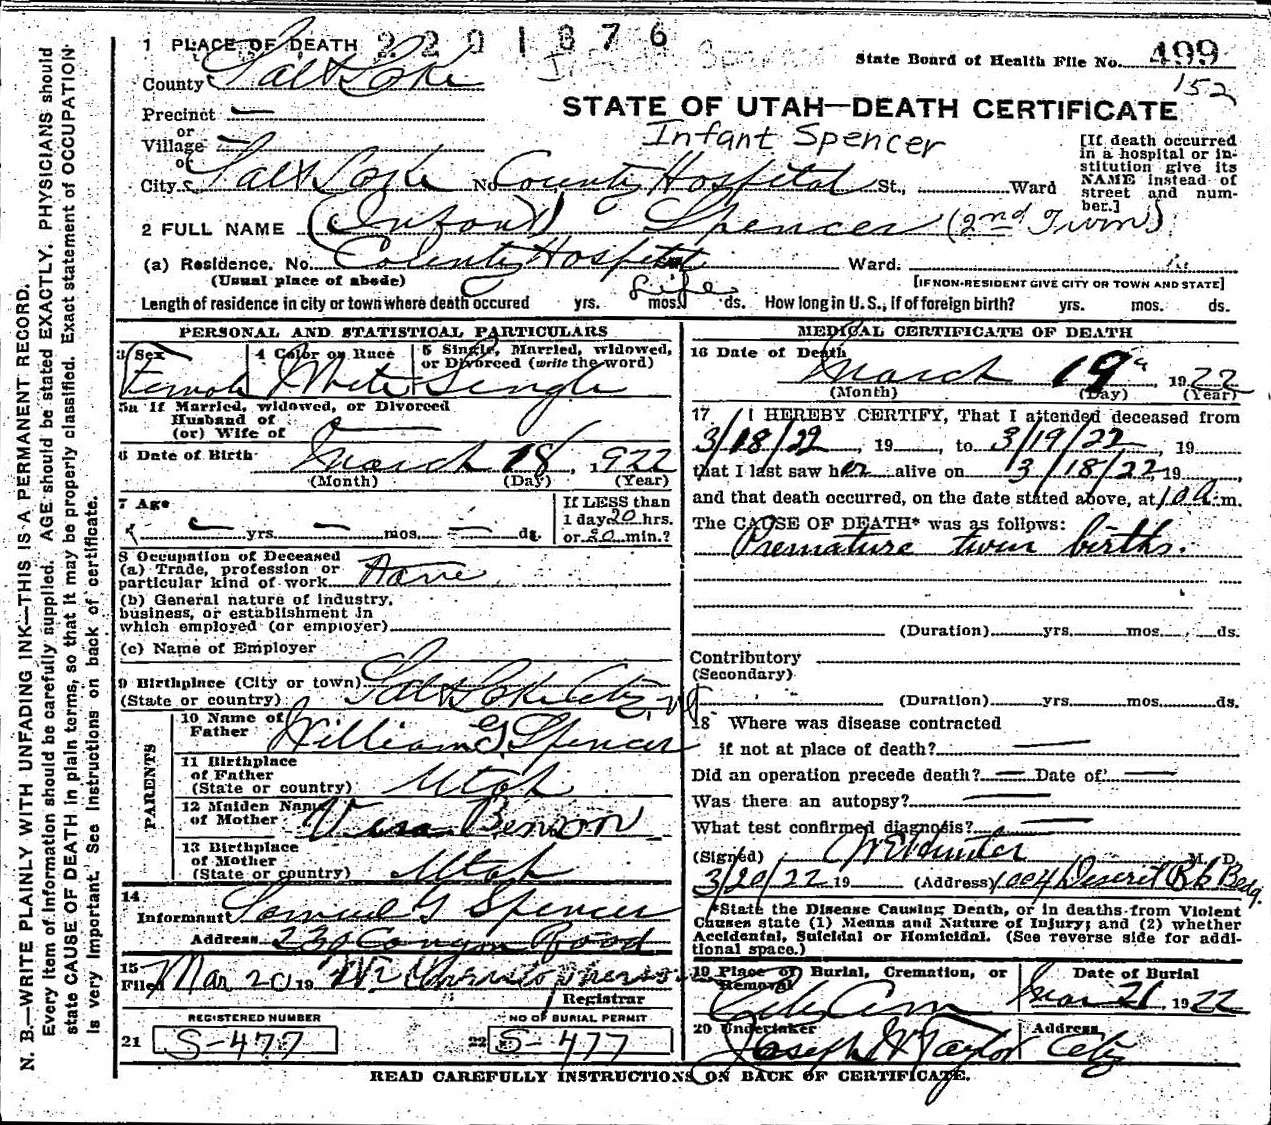 2201876
1 PLACE OF DEATH
State Board of Health File No. 499
152
County Salt Lake
STATE OF UTAH—DEATH CERTIFICATE
Precinct —
or
Village —
or
Infant Spencer
[If death occurred in a hospital or in-
stitution give its
NAME instead of
street and num-
ber.]
City Salt Lake No. County Hospital St., Ward
2 FULL NAME (Infant) Spencer (2nd Twin)
(a) Residence. No. County Hospital Ward.
(Usual place of abode) [IF NON-RESIDENT GIVE CITY OR TOWN AND STATE]
Length of residence in city or town where death occured yrs. Life mos. ds. How long in U. S., if of foreign birth? yrs. mos. ds.
PERSONAL AND STATISTICAL PARTICULARS
3 Sex Female
4 Color or Race White
5 Single, Married, widowed,
or Divorced (write the word) Single
5a If Married, widowed, or Divorced
Husband of
(or) Wife of —
6 Date of Birth March 18, 1922
(Month) (Day) (Year)
7 Age — yrs. — mos. — ds.
If LESS than
1 day 20 hrs.
or 30 min.?
8 Occupation of Deceased
(a) Trade, profession or
particular kind of work None
(b) General nature of industry,
business, or establishment in
which employed (or employer)
(c) Name of Employer
9 Birthplace (City or town) Salt Lake City, Ut
(State or country)
PARENTS
10 Name of
Father William G Spencer
11 Birthplace
of Father
(State or country) Utah
12 Maiden Name
of Mother Vera Benson
13 Birthplace
of Mother
(State or country) Utah
14
Informant Samuel G Spencer
Address Canyon Road
15
Filed Mar 20 19 Registrar
REGISTERED NUMBER
21 S-477
NO OF BURIAL PERMIT
22 S-477
MEDICAL CERTIFICATE OF DEATH
16 Date of Death March 19, 1922
(Month) (Day) (Year)
17 I HEREBY CERTIFY, That I attended deceased from
3/18/22, 19, to 3/19/22, 19
that I last saw her alive on 3/18/22, 19
and that death occurred, on the date stated above, at 10 a. m.
The CAUSE OF DEATH* was as follows:
Premature twin births.
(Duration) yrs. mos. ds.
Contributory
(Secondary)
(Duration) yrs. mos. ds.
18 Where was disease contracted
if not at place of death? —
Did an operation precede death? — Date of —
Was there an autopsy? —
What test confirmed diagnosis? —
(Signed) M. D.
3/20/22 19 (Address) 1004 Deseret Bk Bldg.
*State the Disease Causing Death, or in deaths from Violent
Causes state (1) Means and Nature of Injury; and (2) whether
Accidental, Suicidal or Homicidal. (See reverse side for addi-
tional space.)
19 Place of Burial, Cremation, or
Removal City Cem
Date of Burial
Mar 21 1922
20 Undertaker
Joseph Wm Taylor
Address
City
READ CAREFULLY INSTRUCTIONS ON BACK OF CERTIFICATE.
N. B.—WRITE PLAINLY WITH UNFADING INK—THIS IS A PERMANENT RECORD.
Every item of information should be carefully supplied. AGE should be stated EXACTLY. PHYSICIANS should
state CAUSE OF DEATH in plain terms, so that it may be properly classified. Exact statement of OCCUPATION
is very important. See instructions on back of certificate.